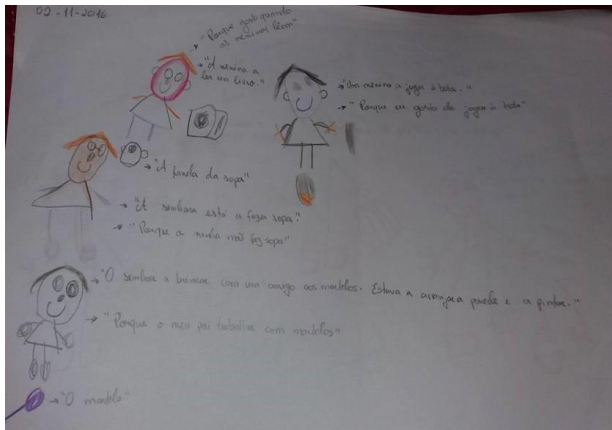 02-11-2016
"Porque gosto quando as meninas lêem"
"A menina a ler um livro."
"Um menino a jogar à bola."
"Porque eu gosto de jogar à bola"
"A panela da sopa"
"A senhora está a fazer sopa."
"Porque a minha mãe faz sopa"
"O senhor a brincar com um amigo aos martelos. Estava a arranjar a parede e a pintar."
"Porque o meu pai trabalha com martelos"
"O martelo"